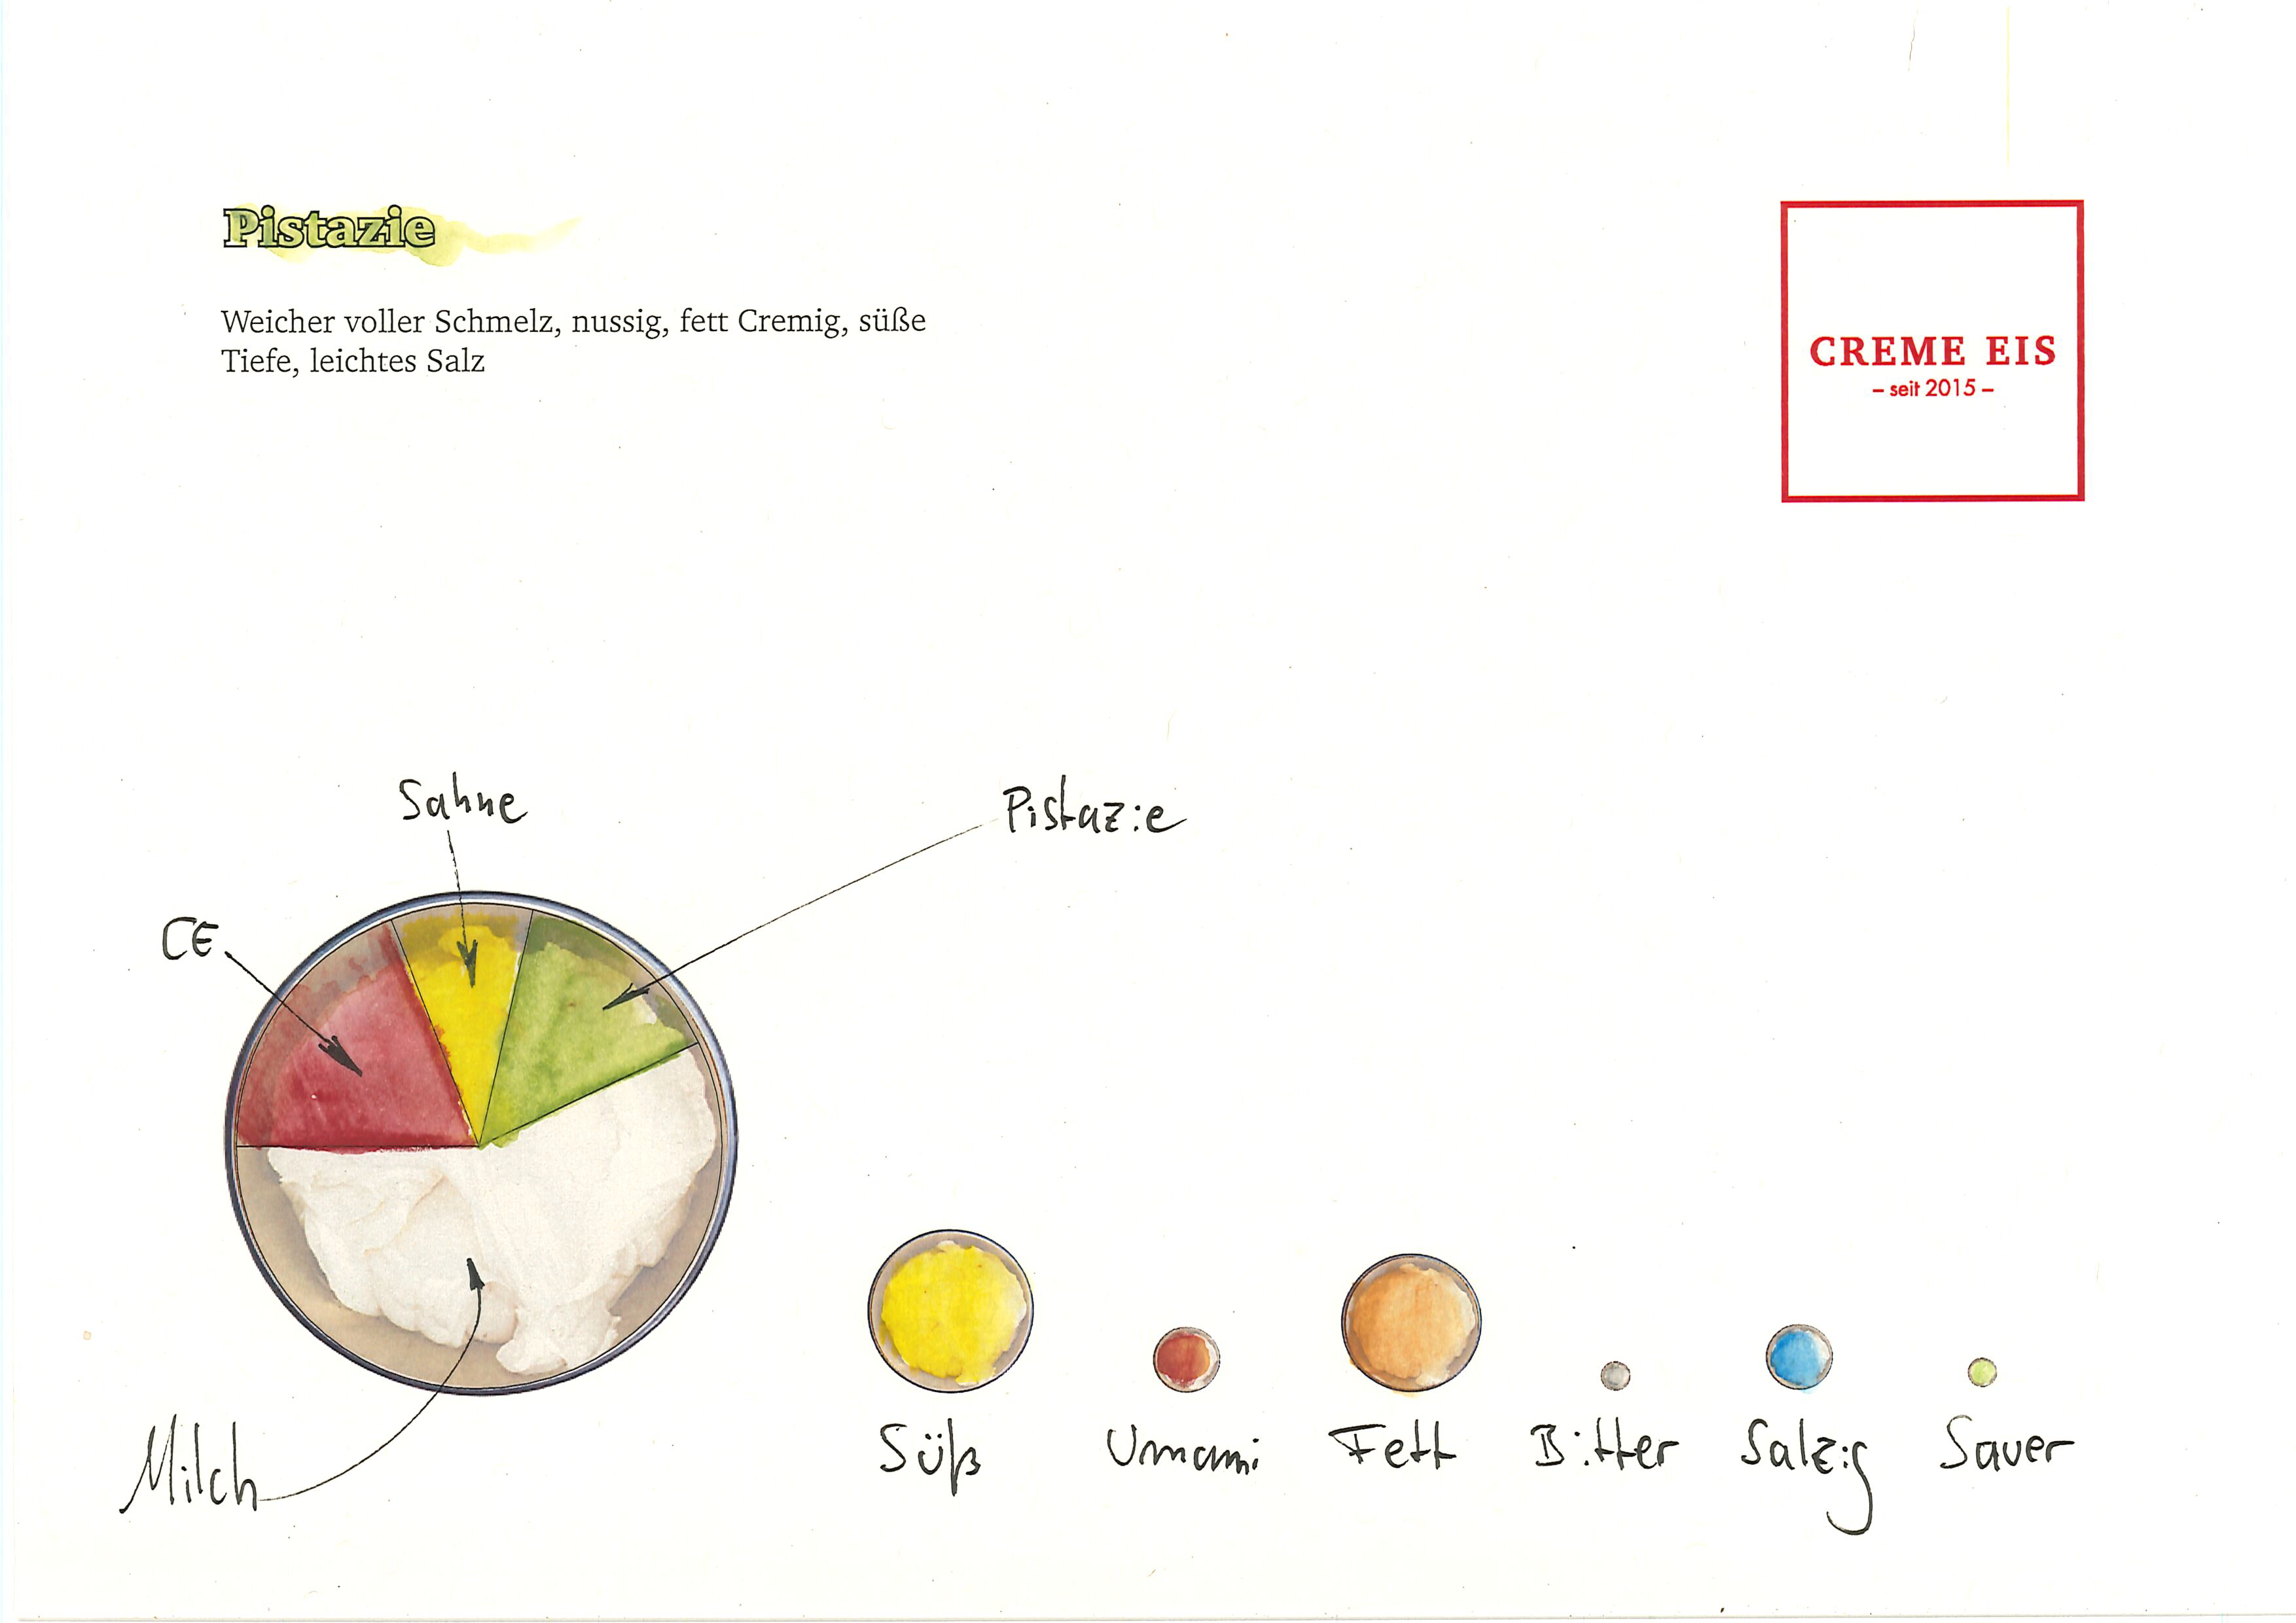 Pistazie
Weicher voller Schmelz, nussig, fett Cremig, süße
Tiefe, leichtes Salz
CREME EIS
– seit 2015 –
Sahne
Pistazie
CE
Milch
Süß
Umami
Fett
Bitter
Salzig
Sauer